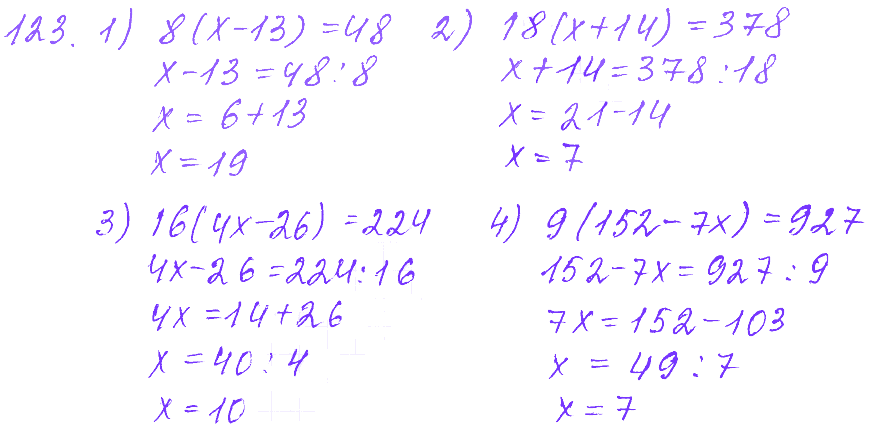 123. 1) 8(x-13)=48
x-13=48:8
x=6+13
x=19
2) 18(x+14)=378
x+14=378:18
x=21-14
x=7
3) 16(4x-26)=224
4x-26=224:16
4x=14+26
x=40:4
x=10
4) 9(152-7x)=927
152-7x=927:9
7x=152-103
x=49:7
x=7